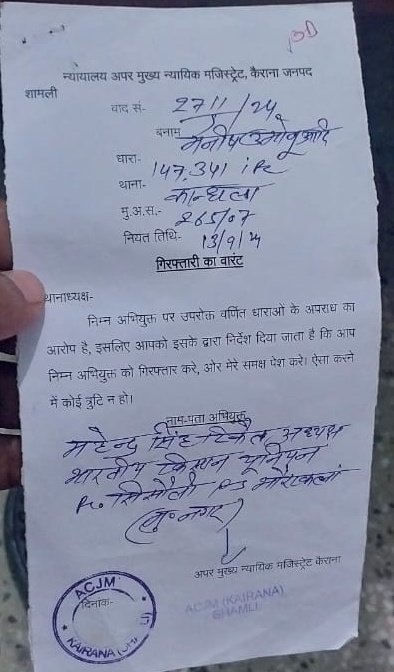 न्यायालय अपर मुख्य न्यायिक मजिस्ट्रेट, कैराना जनपद
शामली
वाद सं- 2711/24
बनाम मनीष उर्फ मोनू आदि
धारा- 147, 341 ipc
थाना- कान्धला
मु.अ.स.- 265/07
नियत तिथि- 13/9/24
गिरफ्तारी का वारंट
थानाध्यक्ष-
निम्न अभियुक्त पर उपरोक्त वर्णित धाराओं के अपराध का
आरोप है, इसलिए आपको इसके द्वारा निर्देश दिया जाता है कि आप
निम्न अभियुक्त को गिरफ्तार करे, ओर मेरे समक्ष पेश करे। ऐसा करने
में कोई त्रुटि न हो।
नाम-पता अभियुक्त
सिंह टिकैत अध्यक्ष
भारतीय किसान यूनियन
सिसौली PS भौराकलां
(मु० नगर)
अपर मुख्य न्यायिक मजिस्ट्रेट कैराना
ACJM (KAIRANA)
SHAMLI
दिनांक-
ACJM
KAIRANA